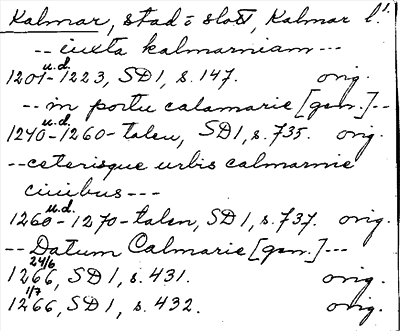 Kalmar, stad o slott, Kalmar l.
-- iuxta kalmarniam ---
u.d.
1201-1223, SD1, s. 147. orig.
-- in portu calamarie [gen.] --
u.d.
1240-1260-talen, SD1, s. 735. orig.
-- ceterisque urbis calmarnie
ciuibus ---
u.d.
1260-1270-talen, SD1, s. 737. orig.
-- Datum Calmarie [gen.] ---
24/6
1266, SD1, s. 431. orig.
1/7
1266, SD1, s. 432. orig.